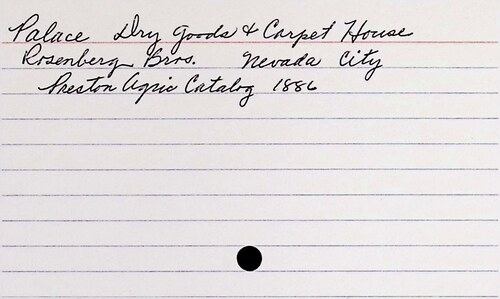 Palace Dry Goods & Carpet House
Rosenberg Bros. Nevada City
Preston Agric Catalog 1886